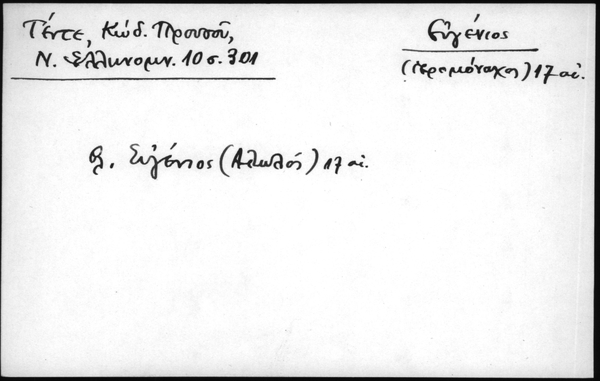 Τέντε, Κώδ. Προυσοῦ,
Ν. Ἑλληνομν. 10 σ. 301
Εὐγένιος
(ἱερομόναχος) 17 αἰ.
βλ. Εὐγένιος (Αἰτωλός) 17 αἰ.